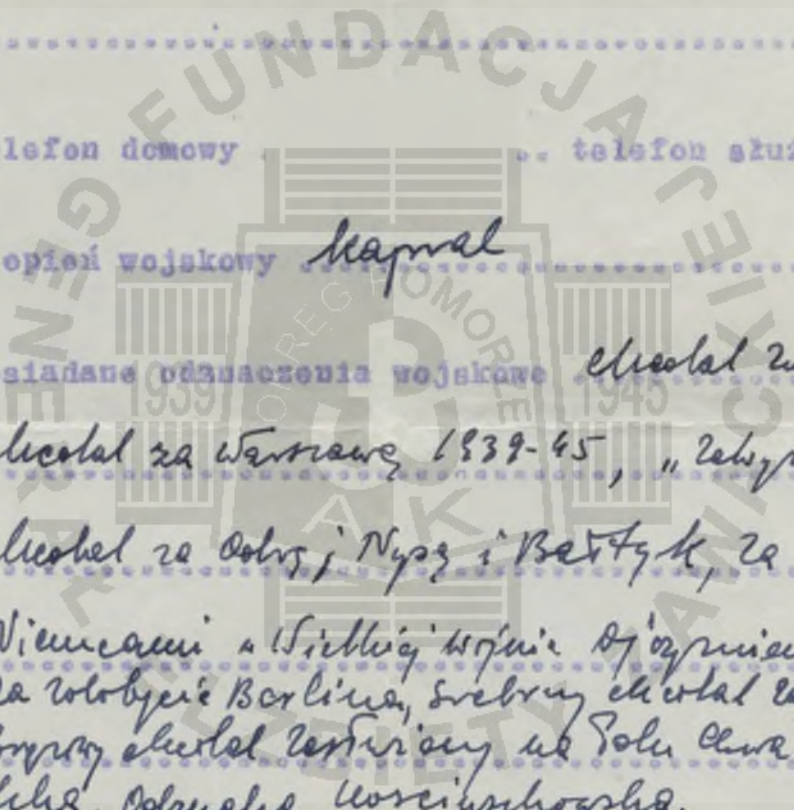 lefon domowy . .. telefon służ
opień wojskowy kapral
siadane odznaczenia wojskowe Medal za
Medal za Warszawę 1939-45, „
Medal za Odrę, Nysę i Bałtyk, za
Niemcami w Wielkiej wojnie Ojczyźnian
za zdobycie Berlina, srebrny medal za
brązowy medal zasłużony na Polu Chwa
Odznaka Kościuszkowska
FUNDACJA GENERAŁ ELŻBIETY ZAWACKIEJ
OKRĘG POMORZE
1939 1945
AK